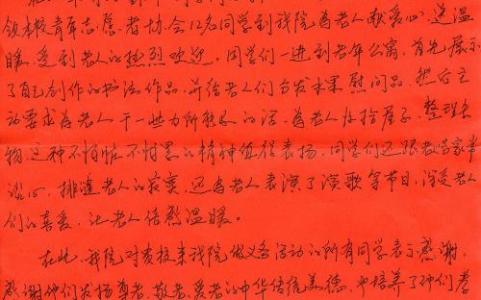 领本校青年志愿者协会12名同学到我院为老人献爱心、送温
暖,受到老人的热烈欢迎。同学们一进到老年公寓,首先展示
了自己创作的书法作品,并给老人们分发水果慰问品,然后主
动要求为老人干一些力所能及的活,为老人收拾屋子、整理衣
物,这种不怕脏、不怕累的精神值得表扬,同学们还跟老人唠家常
谈心,排遣老人的寂寞,还为老人表演了演歌等节目,深受老人
们的喜爱,让老人倍感温暖。
在此,我院对贵校来我院做义务活动的所有同学表示感谢,
感谢他们发扬尊老、敬老、爱老的中华传统美德,也培养了他们